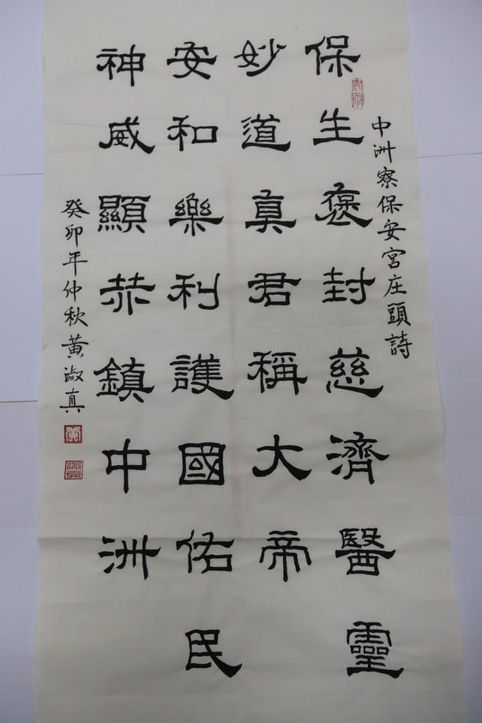 中洲寮保安宮庄頭詩
保生褒封慈濟醫靈
妙道真君稱大帝
安和樂利護國佑民
神威顯赫鎮中洲
癸卯年仲秋黃淑真